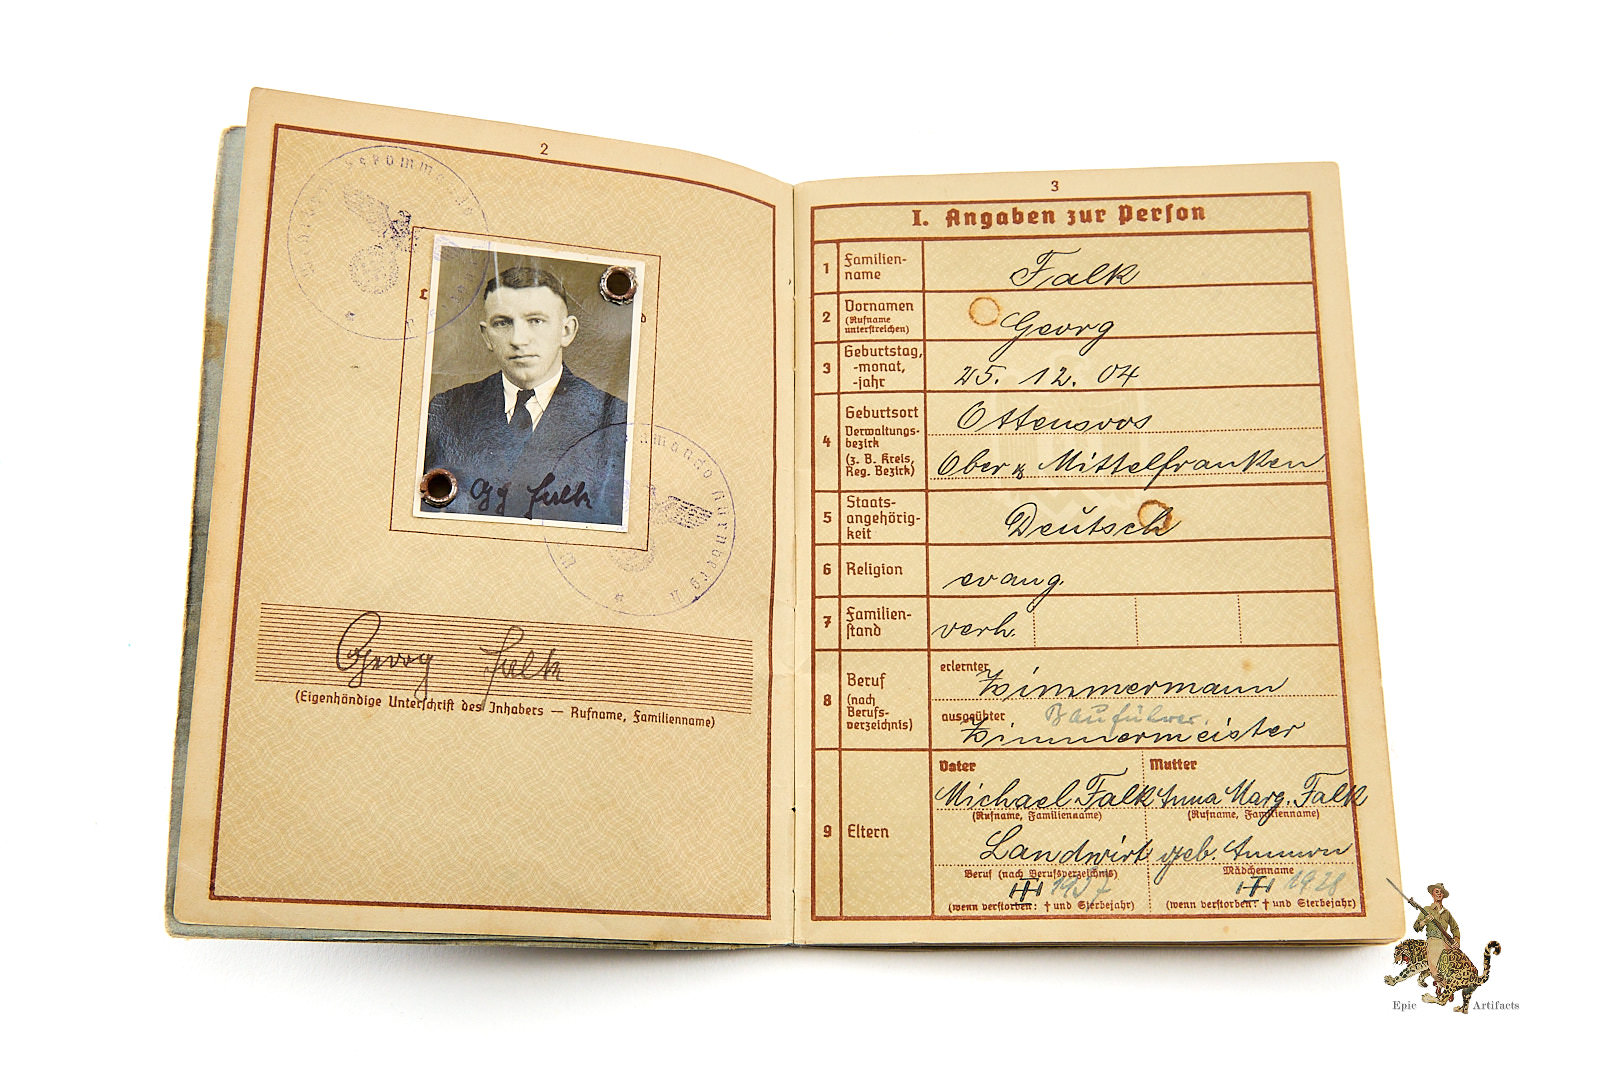 2
Georg Falk
(Eigenhändige Unterschrift des Inhabers — Rufname, Familienname)
3
I. Angaben zur Person
1 Familien-
name
Falk
2 Vornamen
(Rufname
unterstreichen)
Georg
3 Geburtstag,
-monat,
-jahr
25. 12. 04
4 Geburtsort
Verwaltungs-
bezirk
(z. B. Kreis,
Reg. Bezirk)
Ottensoos
Ober & Mittelfranken
5 Staats-
angehörig-
keit
Deutsch
6 Religion
evang.
7 Familien-
stand
verh.
8 Beruf
(nach
Berufs-
verzeichnis)
erlernter
Zimmermann
ausgeübter
Bauführer.
Zimmermeister
9 Eltern
Vater Mutter
Michael Falk Anna Marg. Falk
(Rufname, Familienname) (Rufname, Familienname)
Landwirt geb. Ammon
Beruf (nach Berufsverzeichnis) Mädchenname
1928
(wenn verstorben: † und Sterbejahr) (wenn verstorben: † und Sterbejahr)
Epic Artifacts